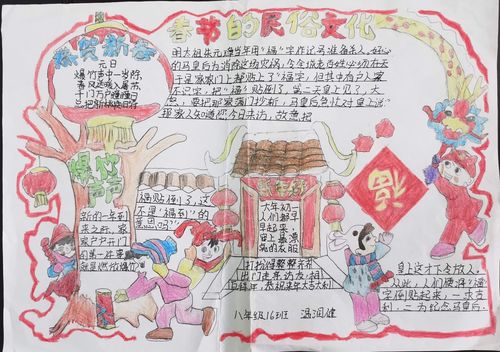 春节的民俗文化
恭贺新春
元日
爆竹声中一岁除
春风送暖入屠苏
千门万户曈曈日
总把新桃换旧符
明太祖朱元璋当年用"福"字作记号准备杀人。好心
的马皇后为消除这场灾祸,令全城老百姓必须在天
于是家家门上都贴上了"福字",但其中有户人家
不识字,把"福"贴倒了。第二天皇上见了,大
怒,要把那家满门抄斩。马皇后急忙对皇上说:
那家人知道您今日来访,故意把
福贴倒了,这
不是"福到"的
意思吗?"
皇上这才下令放人,
从此,人们便将"福
字倒贴起来,一求吉
利,二为纪念马皇后。
爆竹
声声
新的一年到
来之际,家
家户户开门
的第一件事
就是燃放爆竹
大年初一
人们都早
早起来,
穿上最漂
亮的衣服
打扮得整整齐齐
门去走访友,相
互拜年,恭祝来年大吉大利
福
八年级16班